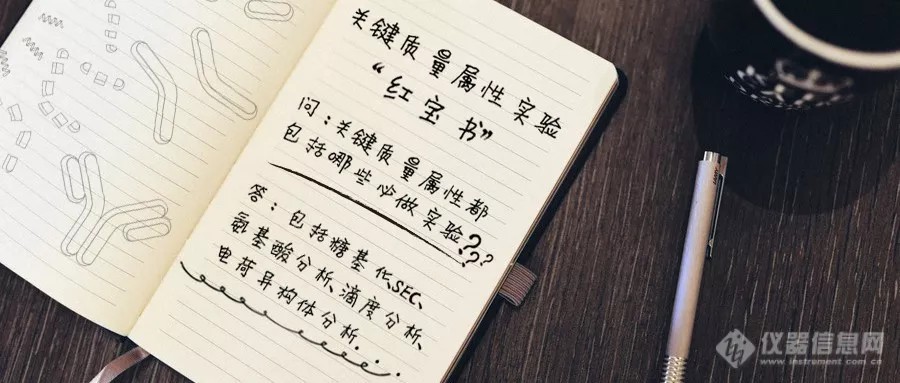 关键质量属性实验
“红宝书”
问：关键质量属性都
包括哪些必做实验???
答：包括糖基化、SEC、
氨基酸分析、滴度分析、
电荷异构体分析...
LAMY
仪器信息网
www.instrument.com.cn